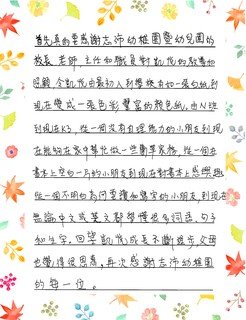 首先真的要感謝志沛幼稚園暨幼兒園的
校長、老師、主任和職員對凱悅的教導和
照顧,令凱悅由最初入到學校有如一張白紙,到
現在變成一張色彩豐富的顏色紙,由N班
到現在K3,從一個沒有自理能力的小朋友到現
在能夠在家中幫忙做一些簡單家務,從一個在
書本上空白一片的小朋友到現在對書本上感興趣,
從一個不明白為何要讀和學習的小朋友,到現在
無論中文或英文都學懂很多詞語、句子
和生字,回望凱悅成長不斷進步,父母
也覺得很恩惠,再次感謝志沛幼稚園
的每一位。